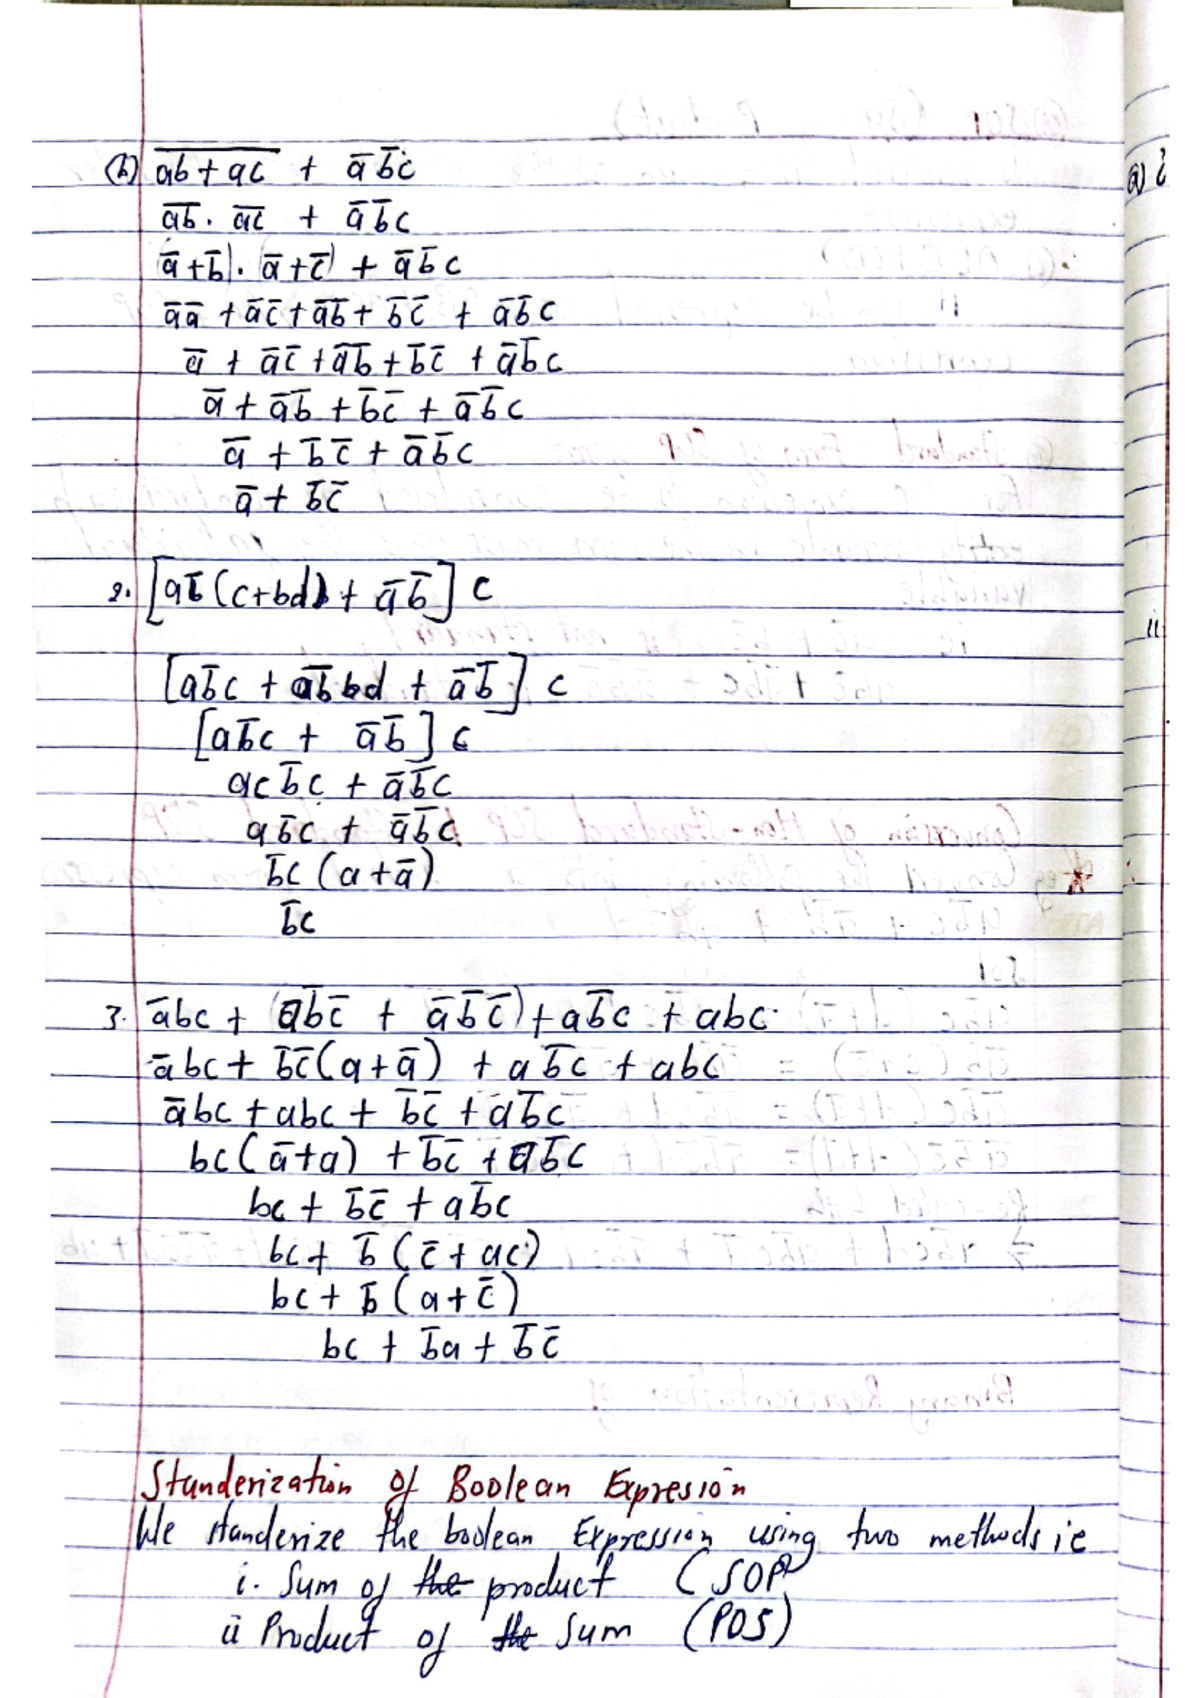 (b) a̅b̅ ̅+̅ ̅a̅c̅ + a̅ b̅ c
a̅b̅ . a̅c̅ + a̅ b̅ c
(a̅ + b̅) . (a̅ + c̅) + a̅ b̅ c
a̅a̅ + a̅c̅ + a̅b̅ + b̅c̅ + a̅b̅c
a̅ + a̅c̅ + a̅b̅ + b̅c̅ + a̅b̅c
a̅ + a̅b̅ + b̅c̅ + a̅b̅c
a̅ + b̅c̅ + a̅b̅c
a̅ + b̅c̅
2. [ab̅(c+bd) + a̅b̅] c
[ab̅c + ab̅bd + a̅b̅] c
[ab̅c + a̅b̅] c
acb̅c + a̅b̅c
ab̅c + a̅b̅c
b̅c (a+a̅)
b̅c
3. a̅bc + (ab̅c̅ + a̅b̅c̅) + ab̅c + abc
a̅bc + b̅c̅(a+a̅) + ab̅c + abc
a̅bc + abc + b̅c̅ + ab̅c
bc(a̅+a) + b̅c̅ + ab̅c
bc + b̅c̅ + ab̅c
bc + b̅(c̅ + ac)
bc + b̅(a + c̅)
bc + b̅a + b̅c̅
Standerization of Boolean Expresion
We standerize the boolean Expression using two methods ie
i. Sum of the product (SOP
ii Product of the Sum (POS)
(a) i
ii